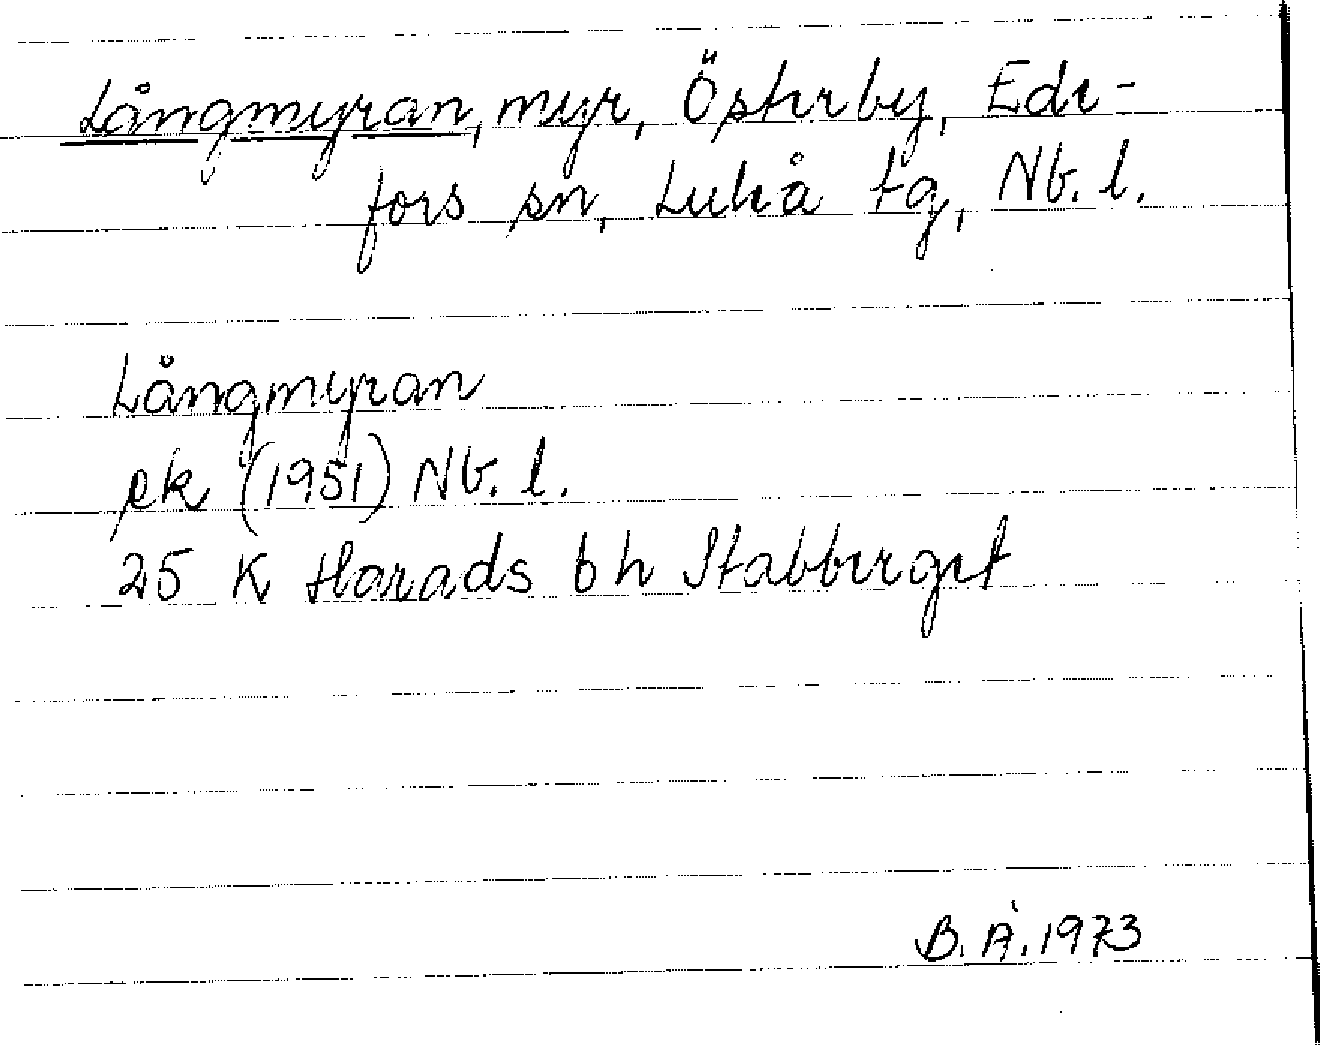 Långmyran, myr, Österby, Ede-
fors sn, Luleå tg, Nb. l.
Långmyran
ek (1951) Nb. l.
25 K Harads bh Stabberget
B. Å. 1973